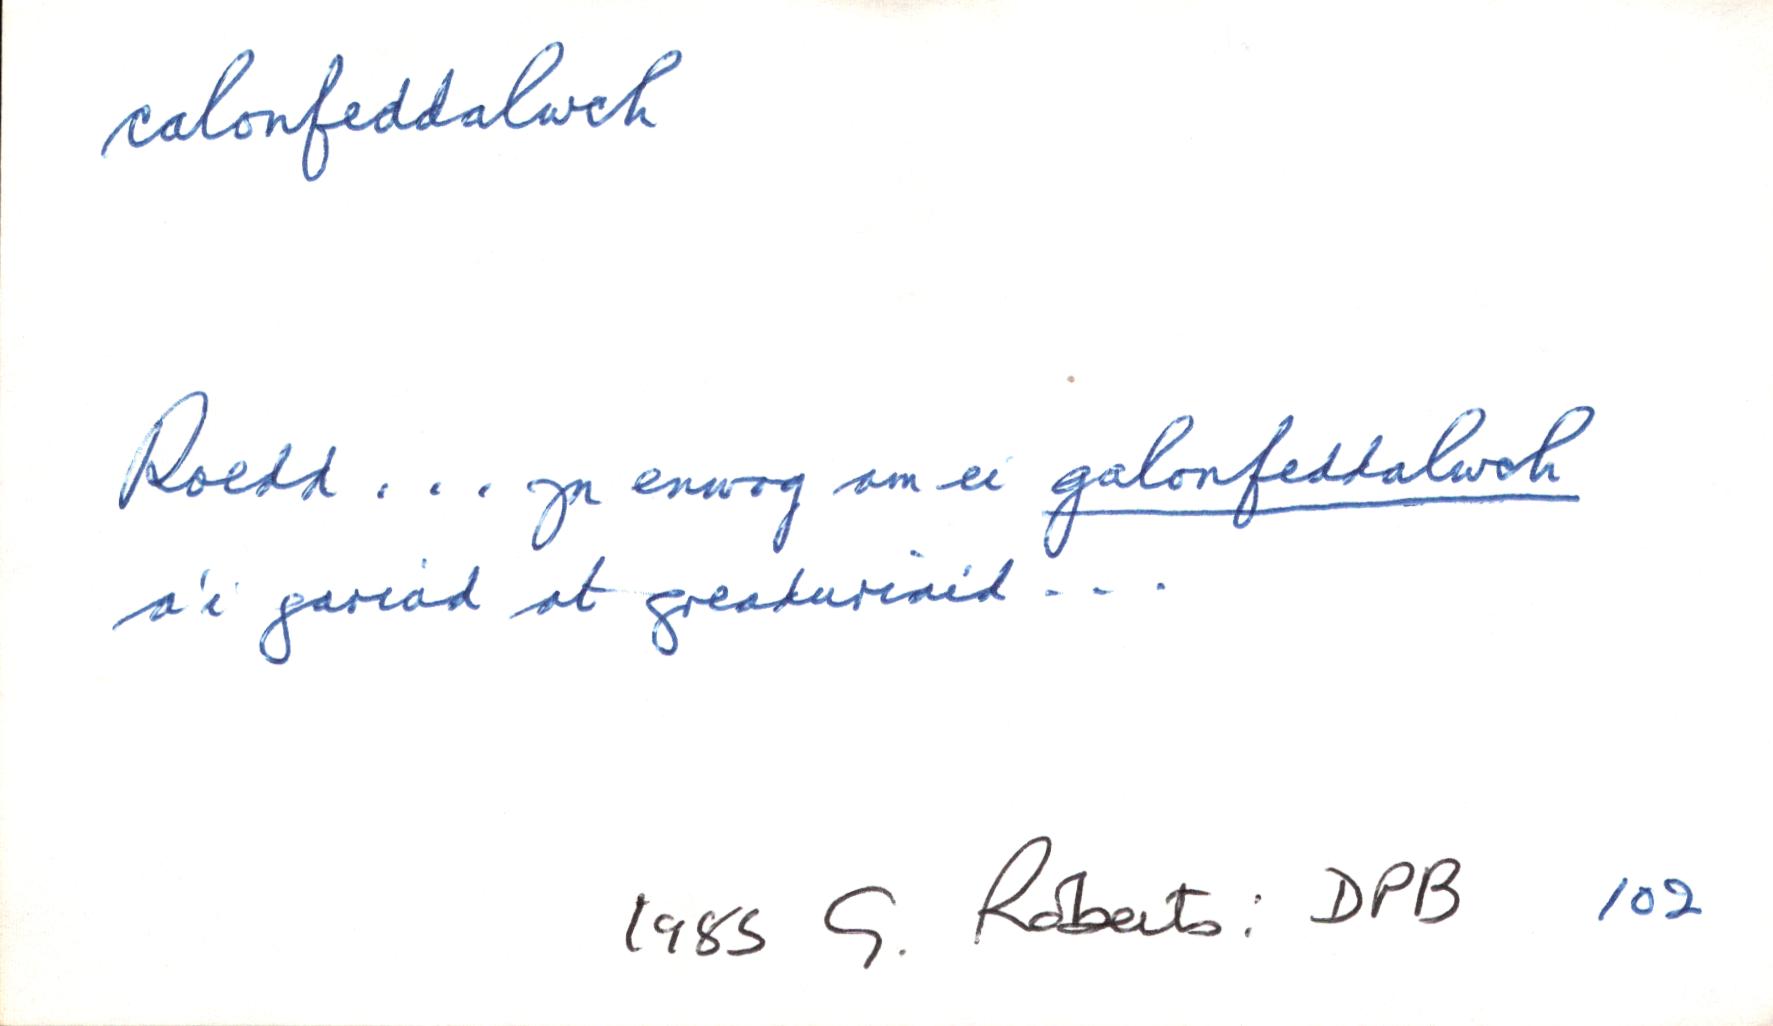 calonfeddalwch
Roedd . . . yn enwog am ei galonfeddalwch
a'i gariad at greaduriaid . . .
1985 G. Roberts: DPB 102